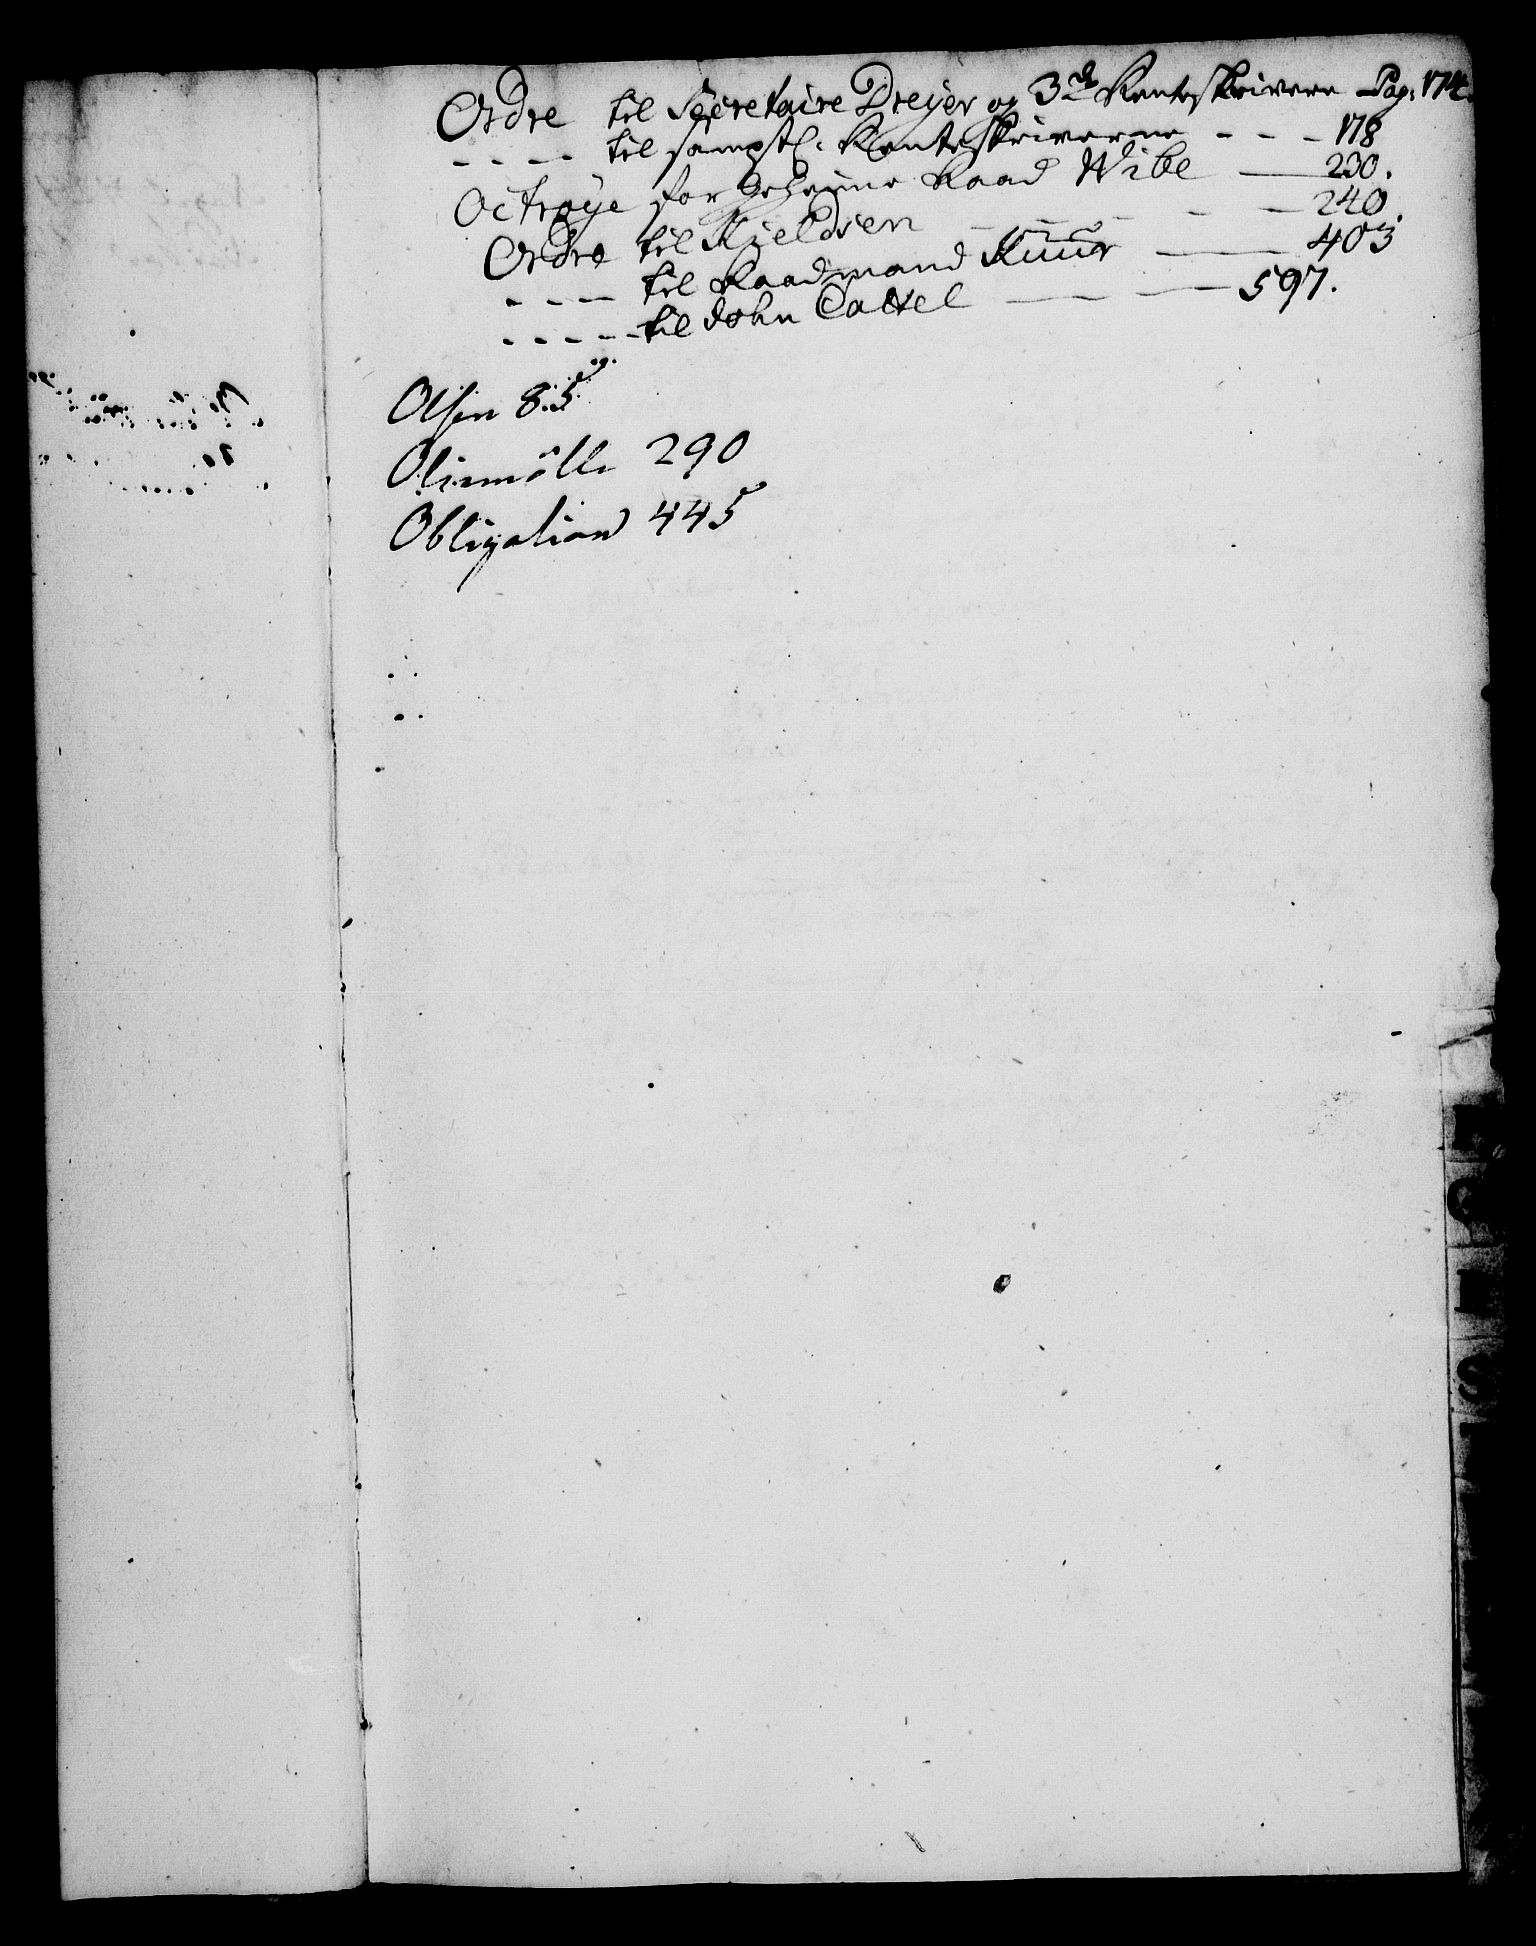 Ordre til Secretaire Dreyer og 3de Renteskrivere Pag: 174.
- - - - til samptl: Renteskriverne - - - 178
Octroye for geheime Raad Wibe 230.
Ordre til Kieldsen - - - 240.
- - - - til Raadmand Kuur 403
- - - - - til John Cattel 597.
Olsen 85
Oliemölle 290
Obligation 445